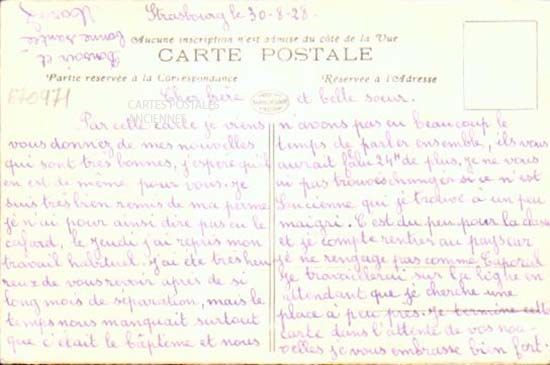 Strasbourg le 30-8-28.
Bonsoir et
bonne santée
Aucune inscription n'est admise du côté de la Vue
CARTE POSTALE
Partie réservée à la Correspondance
Réservée à l'Adresse
670971
CARTES POSTALES
ANCIENNES
Cher frère et belle sœur.
Par cette carte je viens
vous donnez de mes nouvelles
qui sont très bonnes, j'espère qu'il
en est de même pour vous. Je
suis très bien remis de ma perme
je n'ai pour ainsi dire pas eu le
cafard, le jeudi j'ai repris mon
travail habituel. J'ai été très heu
reux de vous revoir après de si
long mois de séparation, mais le
temps nous manquait surtout
que c'était le baptême et nous
n'avons pas eu beaucoup le
temps de parler ensemble, ils vous
aurait fallu 24h de plus. Je ne vous
ai pas trouvés changés si ce n'est
Lucienne que je trouve à un peu
maigri. C'est du peu pour la classe
et je compte rentrer au pays car
je ne rengage pas comme Caporal
Je travaillerai sur la ligne en
attendant que je cherche une
place à peu près. Je termine cette
carte dans l'attente de vos nou-
velles je vous embrasse bien fort.